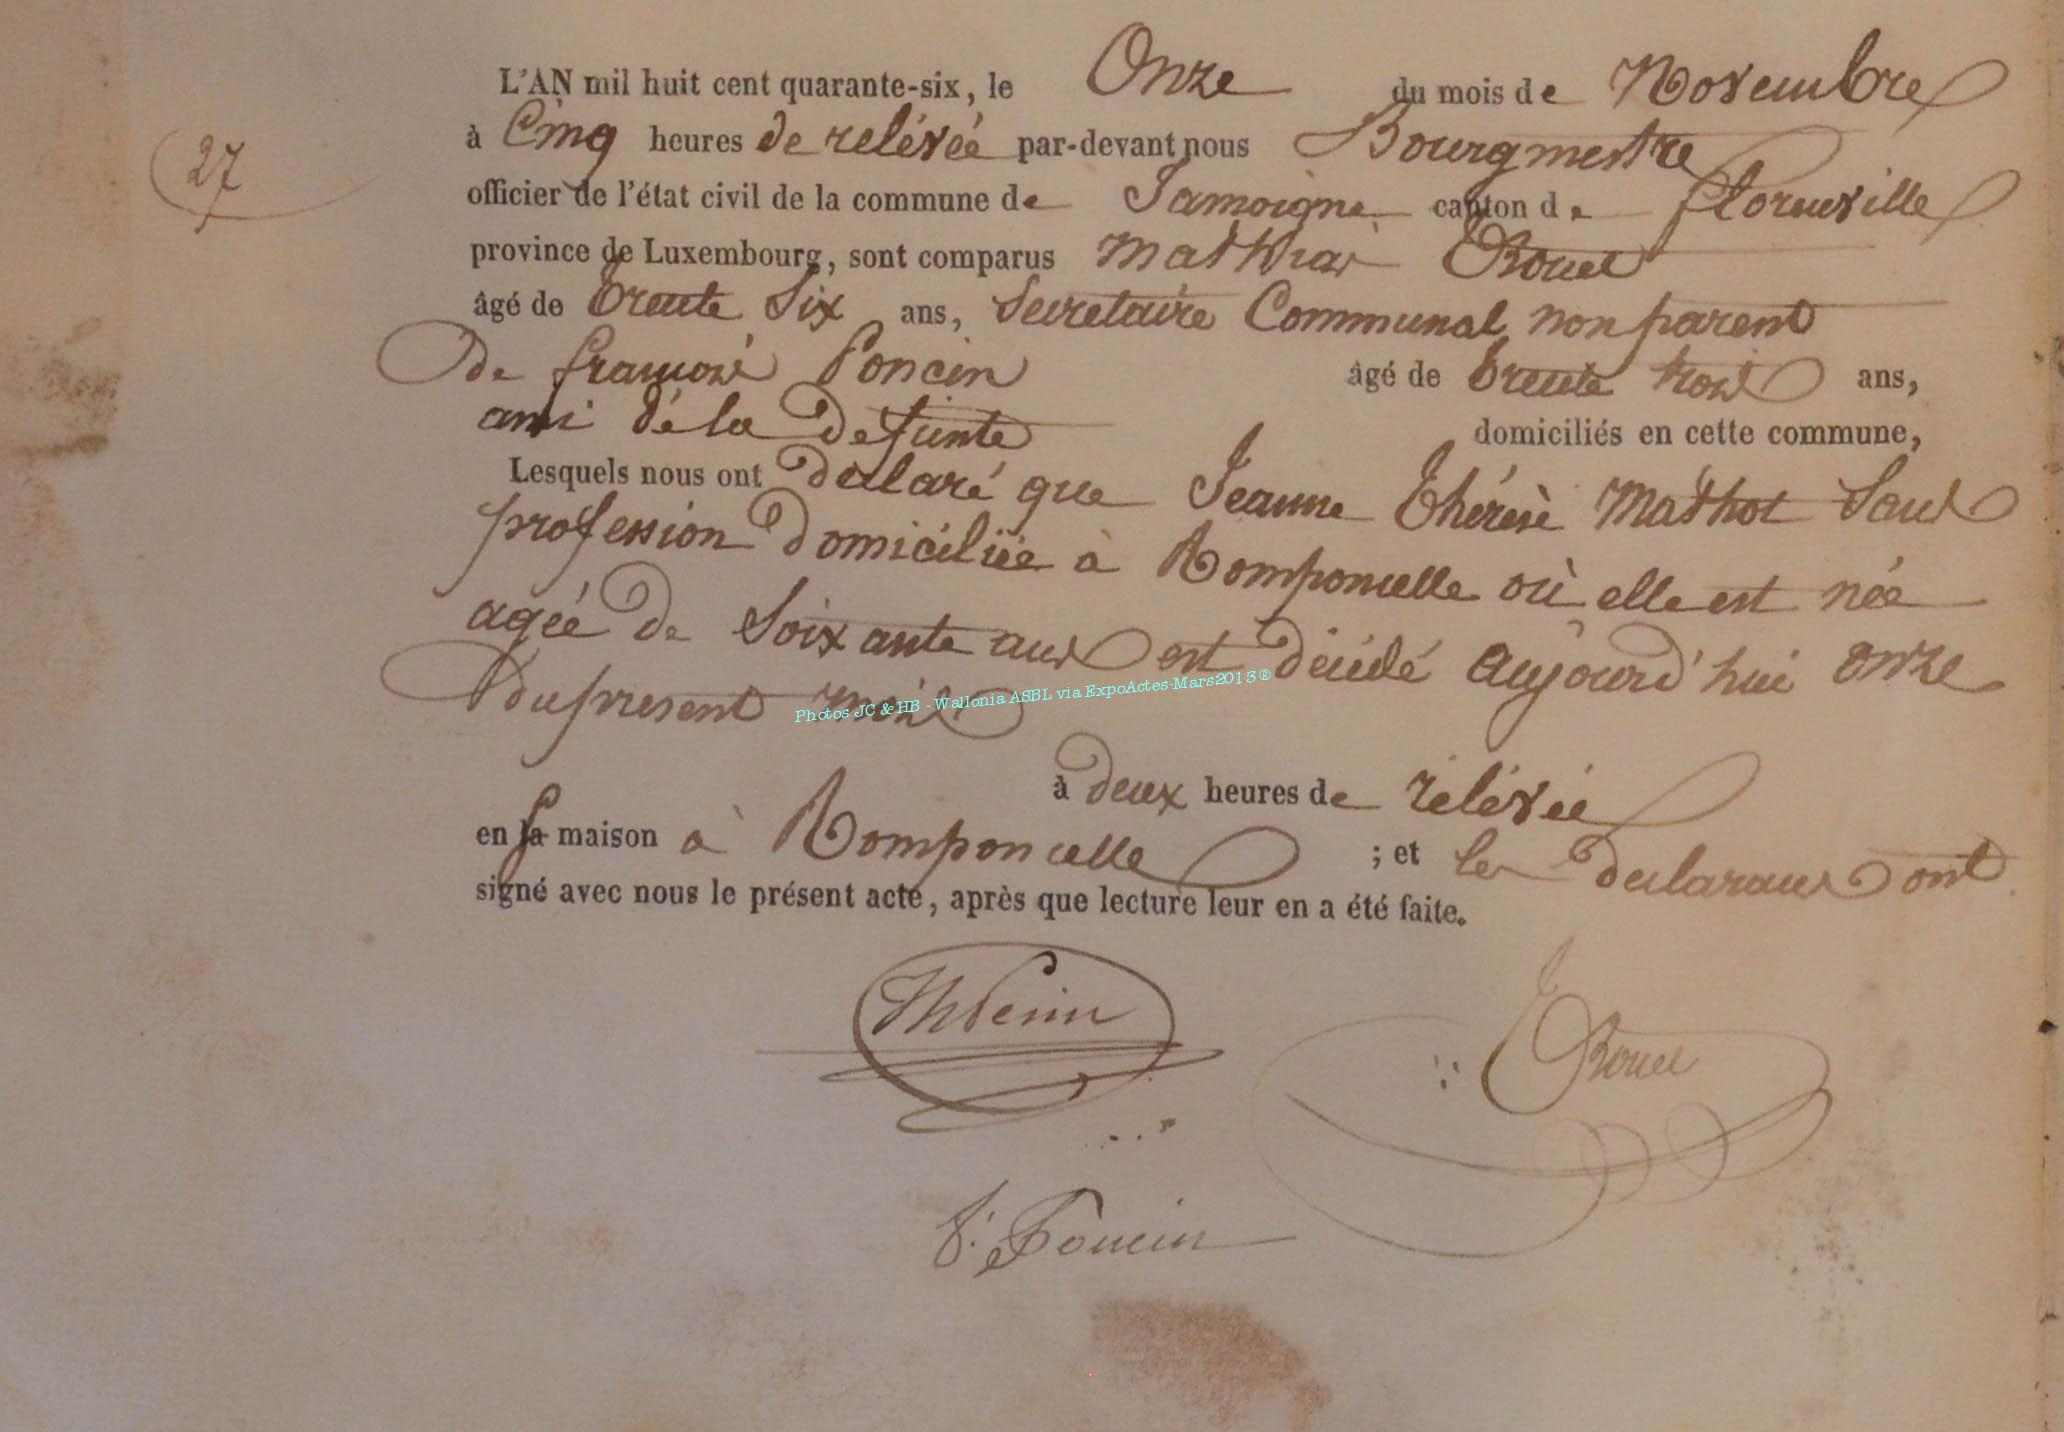 L'AN mil huit cent quarante-six, le Onze du mois de Novembre
à Cinq heures de relévée par-devant nous Bourgmestre
27
officier de l'état civil de la commune de Jamoigne canton de florenville
province de Luxembourg, sont comparus Mathias Rouel
âgé de trente Six ans, Secretaire Communal non parent
De françois Poncin âgé de trente trois ans,
ami dé la Defunte domiciliés en cette commune,
Lesquels nous ont Declaré que Jeanne Thérèsè Mathot Sans
profession Domiciliée à Romponcelle où elle est née
agée De Soixante ans est décédé aujourd'hui onze
Du present mois
Photos JC & HB - Wallonia ASBL via ExpoActes-Mars2013®
à Deux heures de rélévée
en sa maison à Romponcelle ; et les Declarans ont
signé avec nous le présent acte, après que lecture leur en a été faite.
Rouel
f. Poncin